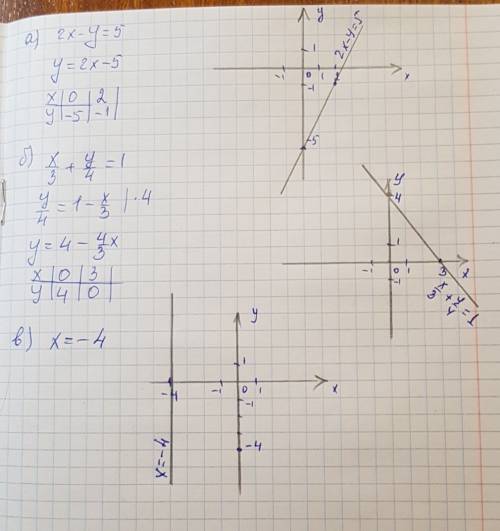 а) 2x-y=5
y=2x-5
x | 0 | 2
y | -5 | -1
y
1
-1 0 1 x
-1
-5
2x-y=5
б) x/3 + y/4 = 1
y/4 = 1 - x/3 | ·4
y = 4 - 4/3 x
x | 0 | 3
y | 4 | 0
y
4
1
-1 0 1 3 x
-1
x/3 + y/4 = 1
в) x=-4
y
1
-4 -1 0 1 x
-1
-4
x=-4